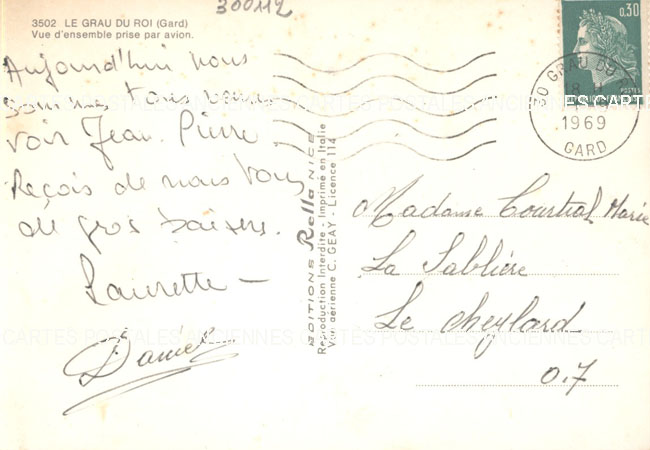 300112
3502 LE GRAU DU ROI (Gard)
Vue d'ensemble prise par avion.
Aujourd'hui nous
sommes tous venus
voir Jean Pierre.
Reçois de nous tous
de gros baisers.
Laurette -
Daniel
EDITIONS Rella NICE
Reproduction Interdite - Imprimé en Italie
Vue aérienne C. GEAY - Licence 114
0,30
POSTES
30 GRAU DU
1969
GARD
ES CART
Madame Courtial Marie
La Sablière
Le Cheylard
07
CARTES POSTALES ANCIENNES CARTES POSTALES ANCIENNES CART